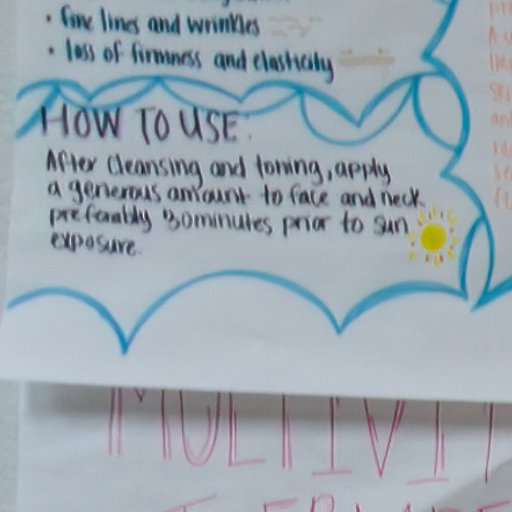 • fine lines and wrinkles
• loss of firmness and elasticity
HOW TO USE:
After cleansing and toning, apply
a generous amount to face and neck
preferably 30minutes prior to sun
exposure.
MULTIVIT